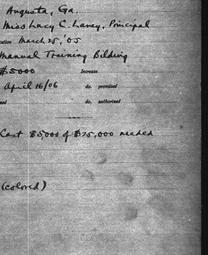 Augusta, Ga.
Miss Lucy C. Laney, Principal
cation March 25, '05
Manual Training Bilding
$5000 Increase
April 16/06 do. promised
sed do. authorized
Last $5000 of $15,000 needed
(colored)